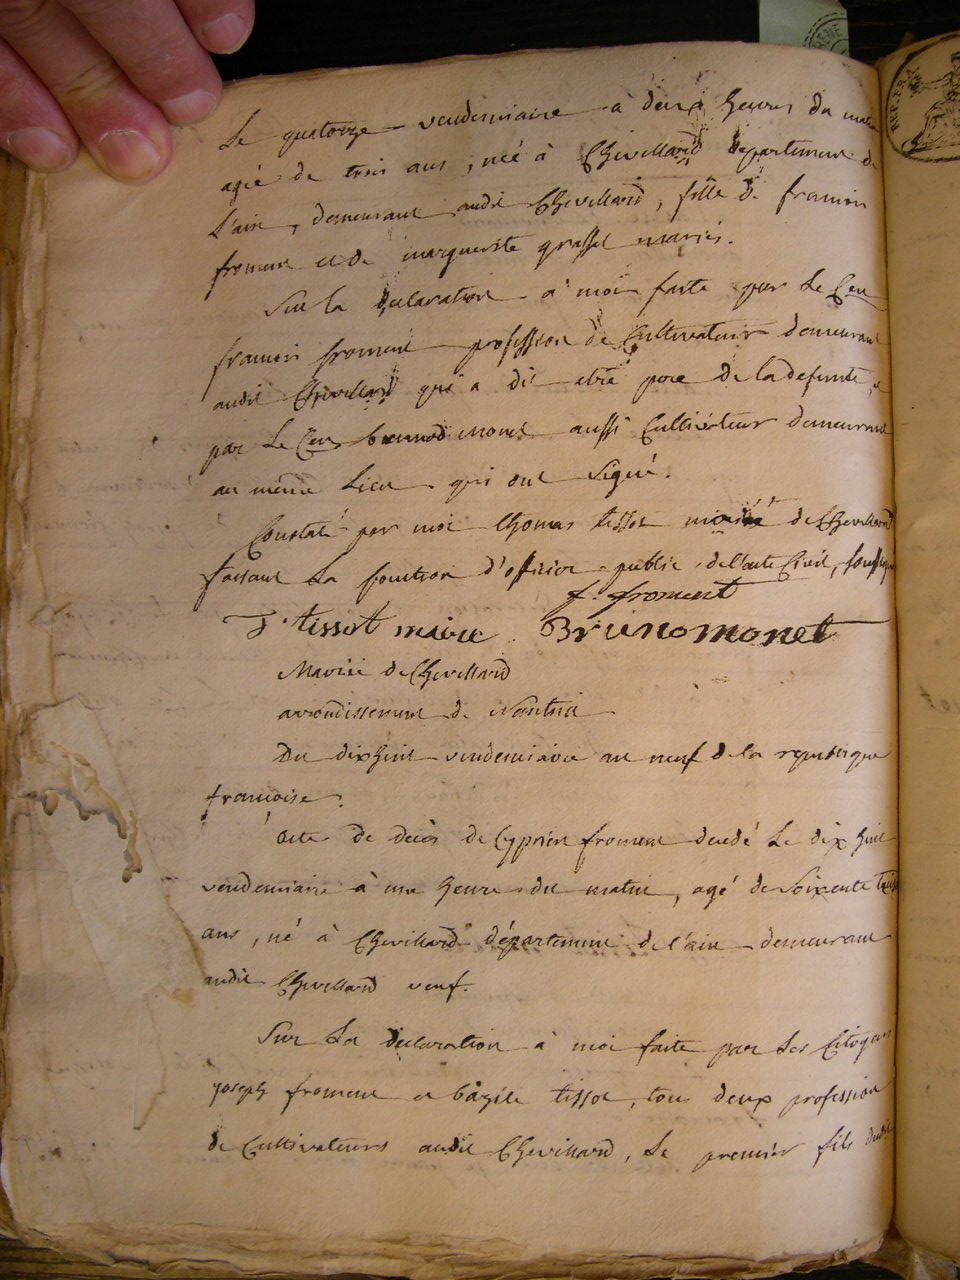 Le quatorze vendemiaire à deux heures du matin
agée de trois ans, née à Chevillard departement de
L'ain, demeurant audit Chevillard, fille de francois
froment et de marguerite grassel mariés.
Sur la declaration à moi faite par Le Cen
francois froment profession de Cultivateur demeurant
audit Chevillard qui a dit etre pere de la defunte, et
par Le Cen monet aussi Cultivateur demeurant
au même Lieu qui ont Signé.
Constaté par moi thomas tissot maire de Chevillard
faisant La fonction d'officier public de l'acte Civil, soussigné
f. froment
T. tissot maire Bruno monet
Mairie de Chevillard
arrondissement de Nantua
Du dix huit vendemiaire an neuf de la republique
francoise.
Acte de decès de Cyprien froment decedé Le dix huit
vendemiaire à une heure du matin, agé de Soixente trois
ans, né à Chevillard département de l'ain demeurant
audit Chevillard veuf.
Sur La declaration à moi faite par Les Citoyens
joseph froment et bazile tissot, tous deux profession
de Cultivateurs audit Chevillard, Le premier fils dudit
REP. FRA